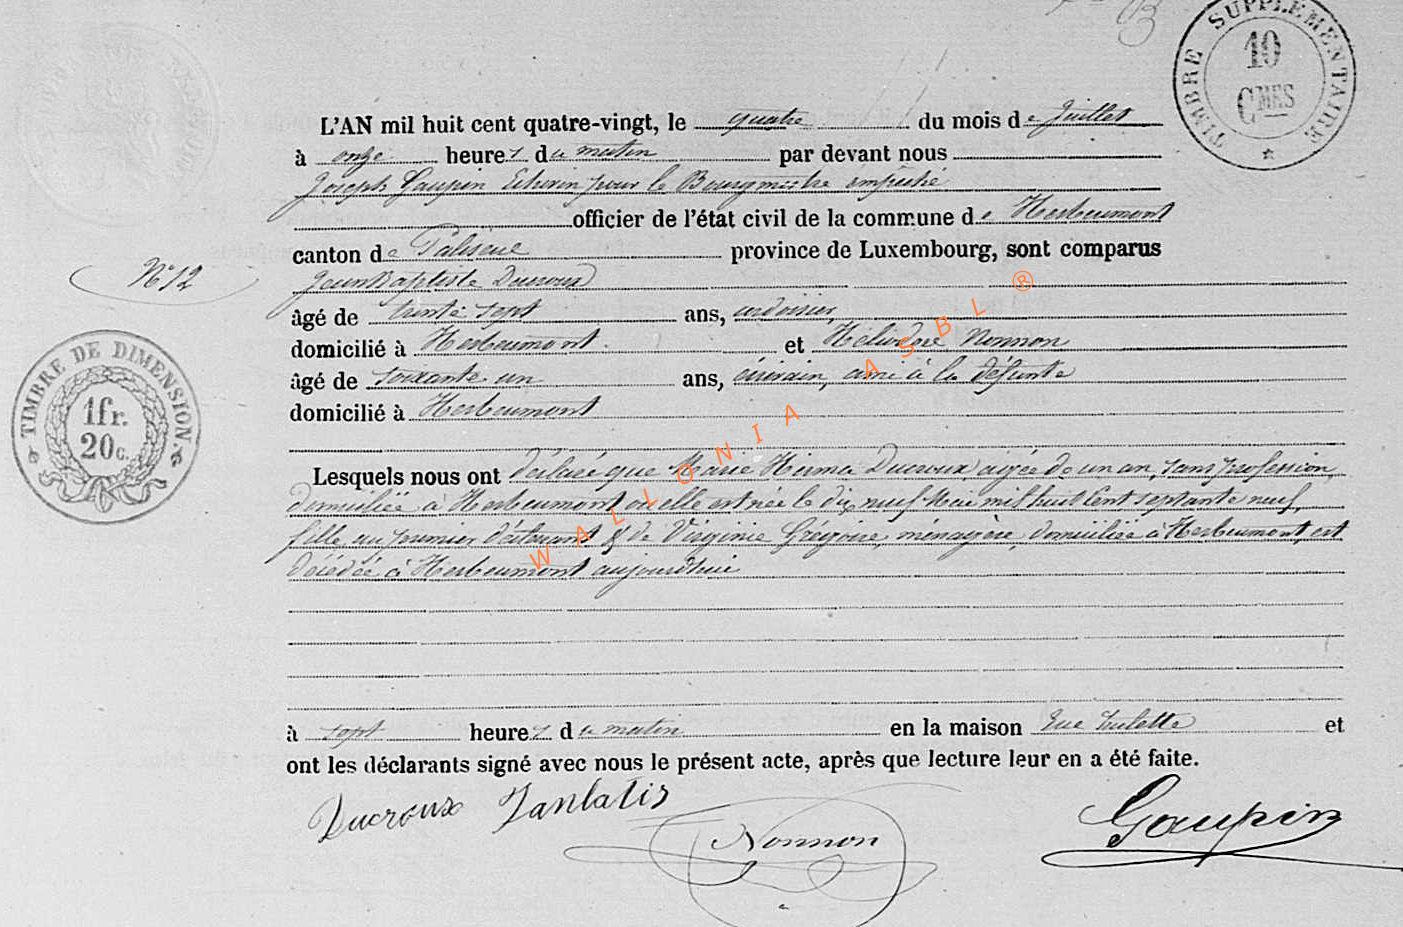 TIMBRE SUPPLÉMENTAIRE
10
CMES
L'AN mil huit cent quatre-vingt, le quatre du mois de Juillet
à onze heures du matin par devant nous
Joseph Gaupin Echevin pour le Bourgmestre empêché
officier de l'état civil de la commune de Herbeumont
canton de Paliseul province de Luxembourg, sont comparus
N° 12
Jean Baptiste Ducroux
âgé de trente sept ans, ardoisier,
domicilié à Herbeumont et Héliodore Nonnon
âgé de soixante un ans, écrivain, ami à la défunte
domicilié à Herbeumont
TIMBRE DE DIMENSION.
1fr.
20c.
Lesquels nous ont déclaré que Marie Hirma Ducroux, agée de un an, sans profession,
domiciliée à Herbeumont où elle est née le dix neuf Mai mil huit cent septante neuf,
fille au premier déclarant & de Virginie Grégoire, ménagère, domiciliée à Herbeumont, est
décédée à Herbeumont aujourd'hui
à sept heures du matin en la maison rue et
ont les déclarants signé avec nous le présent acte, après que lecture leur en a été faite.
Ducroux Janbatis
Nonnon
Gaupin
WALLONIA ASBL ®